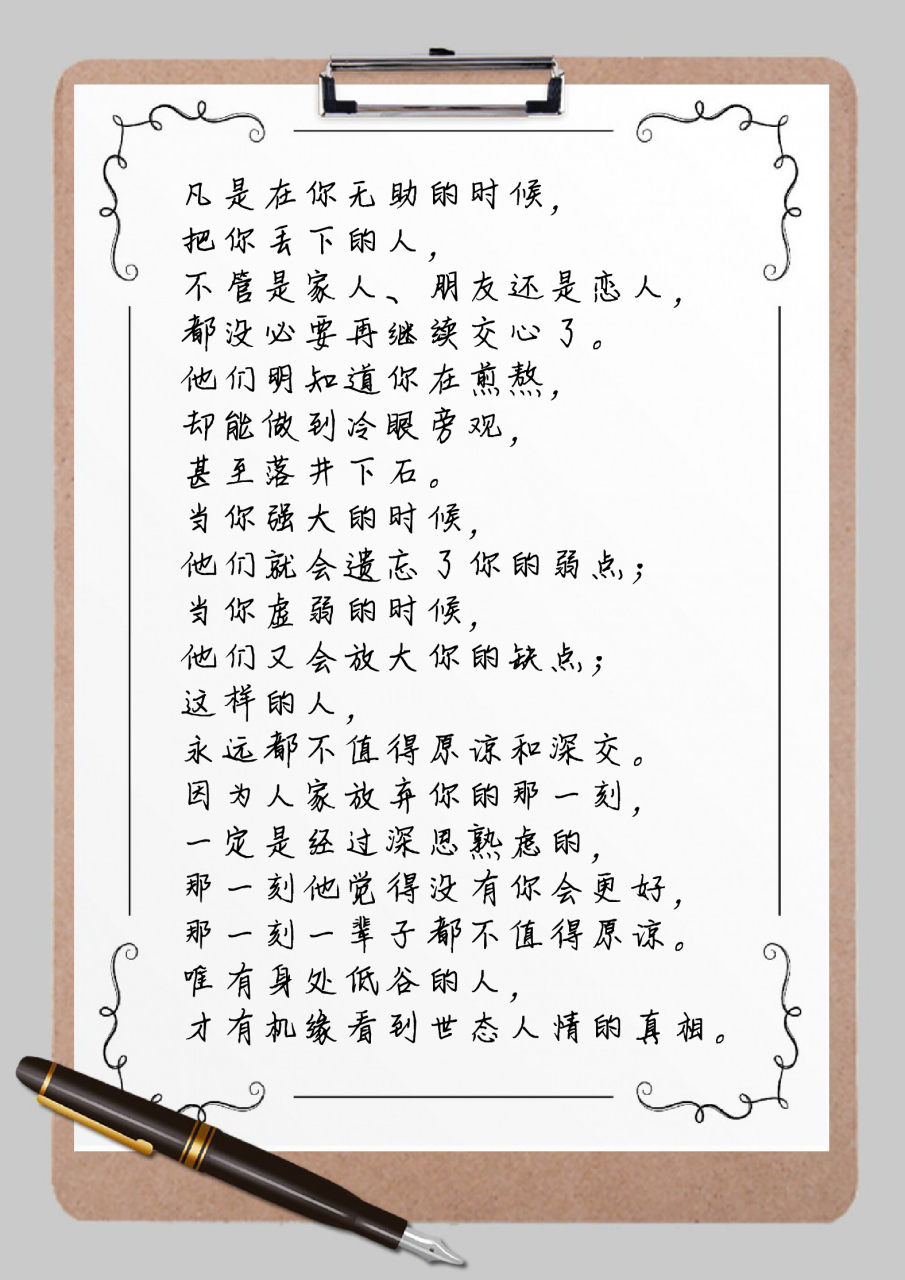 凡是在你无助的时候，
把你丢下的人，
不管是家人、朋友还是恋人，
都没必要再继续交心了。
他们明知道你在煎熬，
却能做到冷眼旁观，
甚至落井下石。
当你强大的时候，
他们就会遗忘了你的弱点；
当你虚弱的时候，
他们又会放大你的缺点；
这样的人，
永远都不值得原谅和深交。
因为人家放弃你的那一刻，
一定是经过深思熟虑的，
那一刻他觉得没有你会更好，
那一刻一辈子都不值得原谅。
唯有身处低谷的人，
才有机缘看到世态人情的真相。